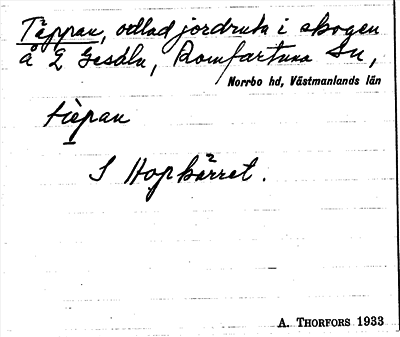 Täppan, odlad jordruta i skogen
å Ö Gesala, Romfartuna Sn,
Norrbo hd, Västmanlands län
tὲpan
I Hopkärret.
A. THORFORS 1933